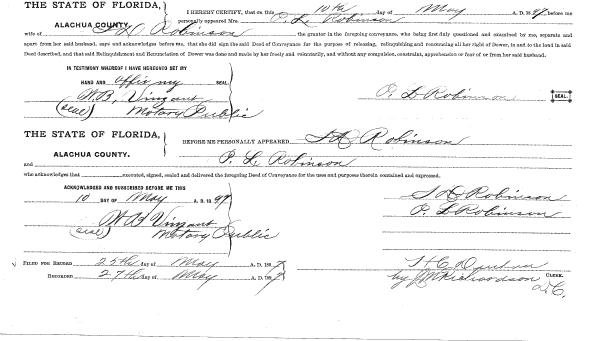 THE STATE OF FLORIDA,
ALACHUA COUNTY.
I HEREBY CERTIFY, that on this 10th day of May A. D. 1897 before me
personally appeared Mrs. P. L. Robinson
wife of S D Robinson the grantor in the foregoing conveyance, who being first duly questioned and examined by me, separate and
apart from her said husband, says and acknowledges before me, that she did sign the said Deed of Conveyance for the purpose of releasing, relinquishing and renouncing all her right of Dower, in and to the land in said
Deed described, and that said Relinquishment and Renunciation of Dower was done and made by her freely and voluntarily, and without any compulsion, constraint, apprehension or fear of or from her said husband.
IN TESTIMONY WHEREOF I HAVE HEREUNTO SET MY
HAND AND affix my SEAL
W. B. Vinzant
(seal) Notary Public
P. L. Robinson SEAL.
THE STATE OF FLORIDA,
ALACHUA COUNTY.
BEFORE ME PERSONALLY APPEARED S D Robinson
and P. L. Robinson
who acknowledges that executed, signed, sealed and delivered the foregoing Deed of Conveyance for the uses and purposes therein contained and expressed.
ACKNOWLEDGED AND SUBSCRIBED BEFORE ME THIS
10 DAY OF May A. D. 1897
W B Vinzant
(seal) Notary Public
S D Robinson
P. L. Robinson
FILED FOR RECORD 25th day of May A. D. 1897
RECORDED 27th day of May A. D. 1897
CLERK.
by J M Richardson
D.C.